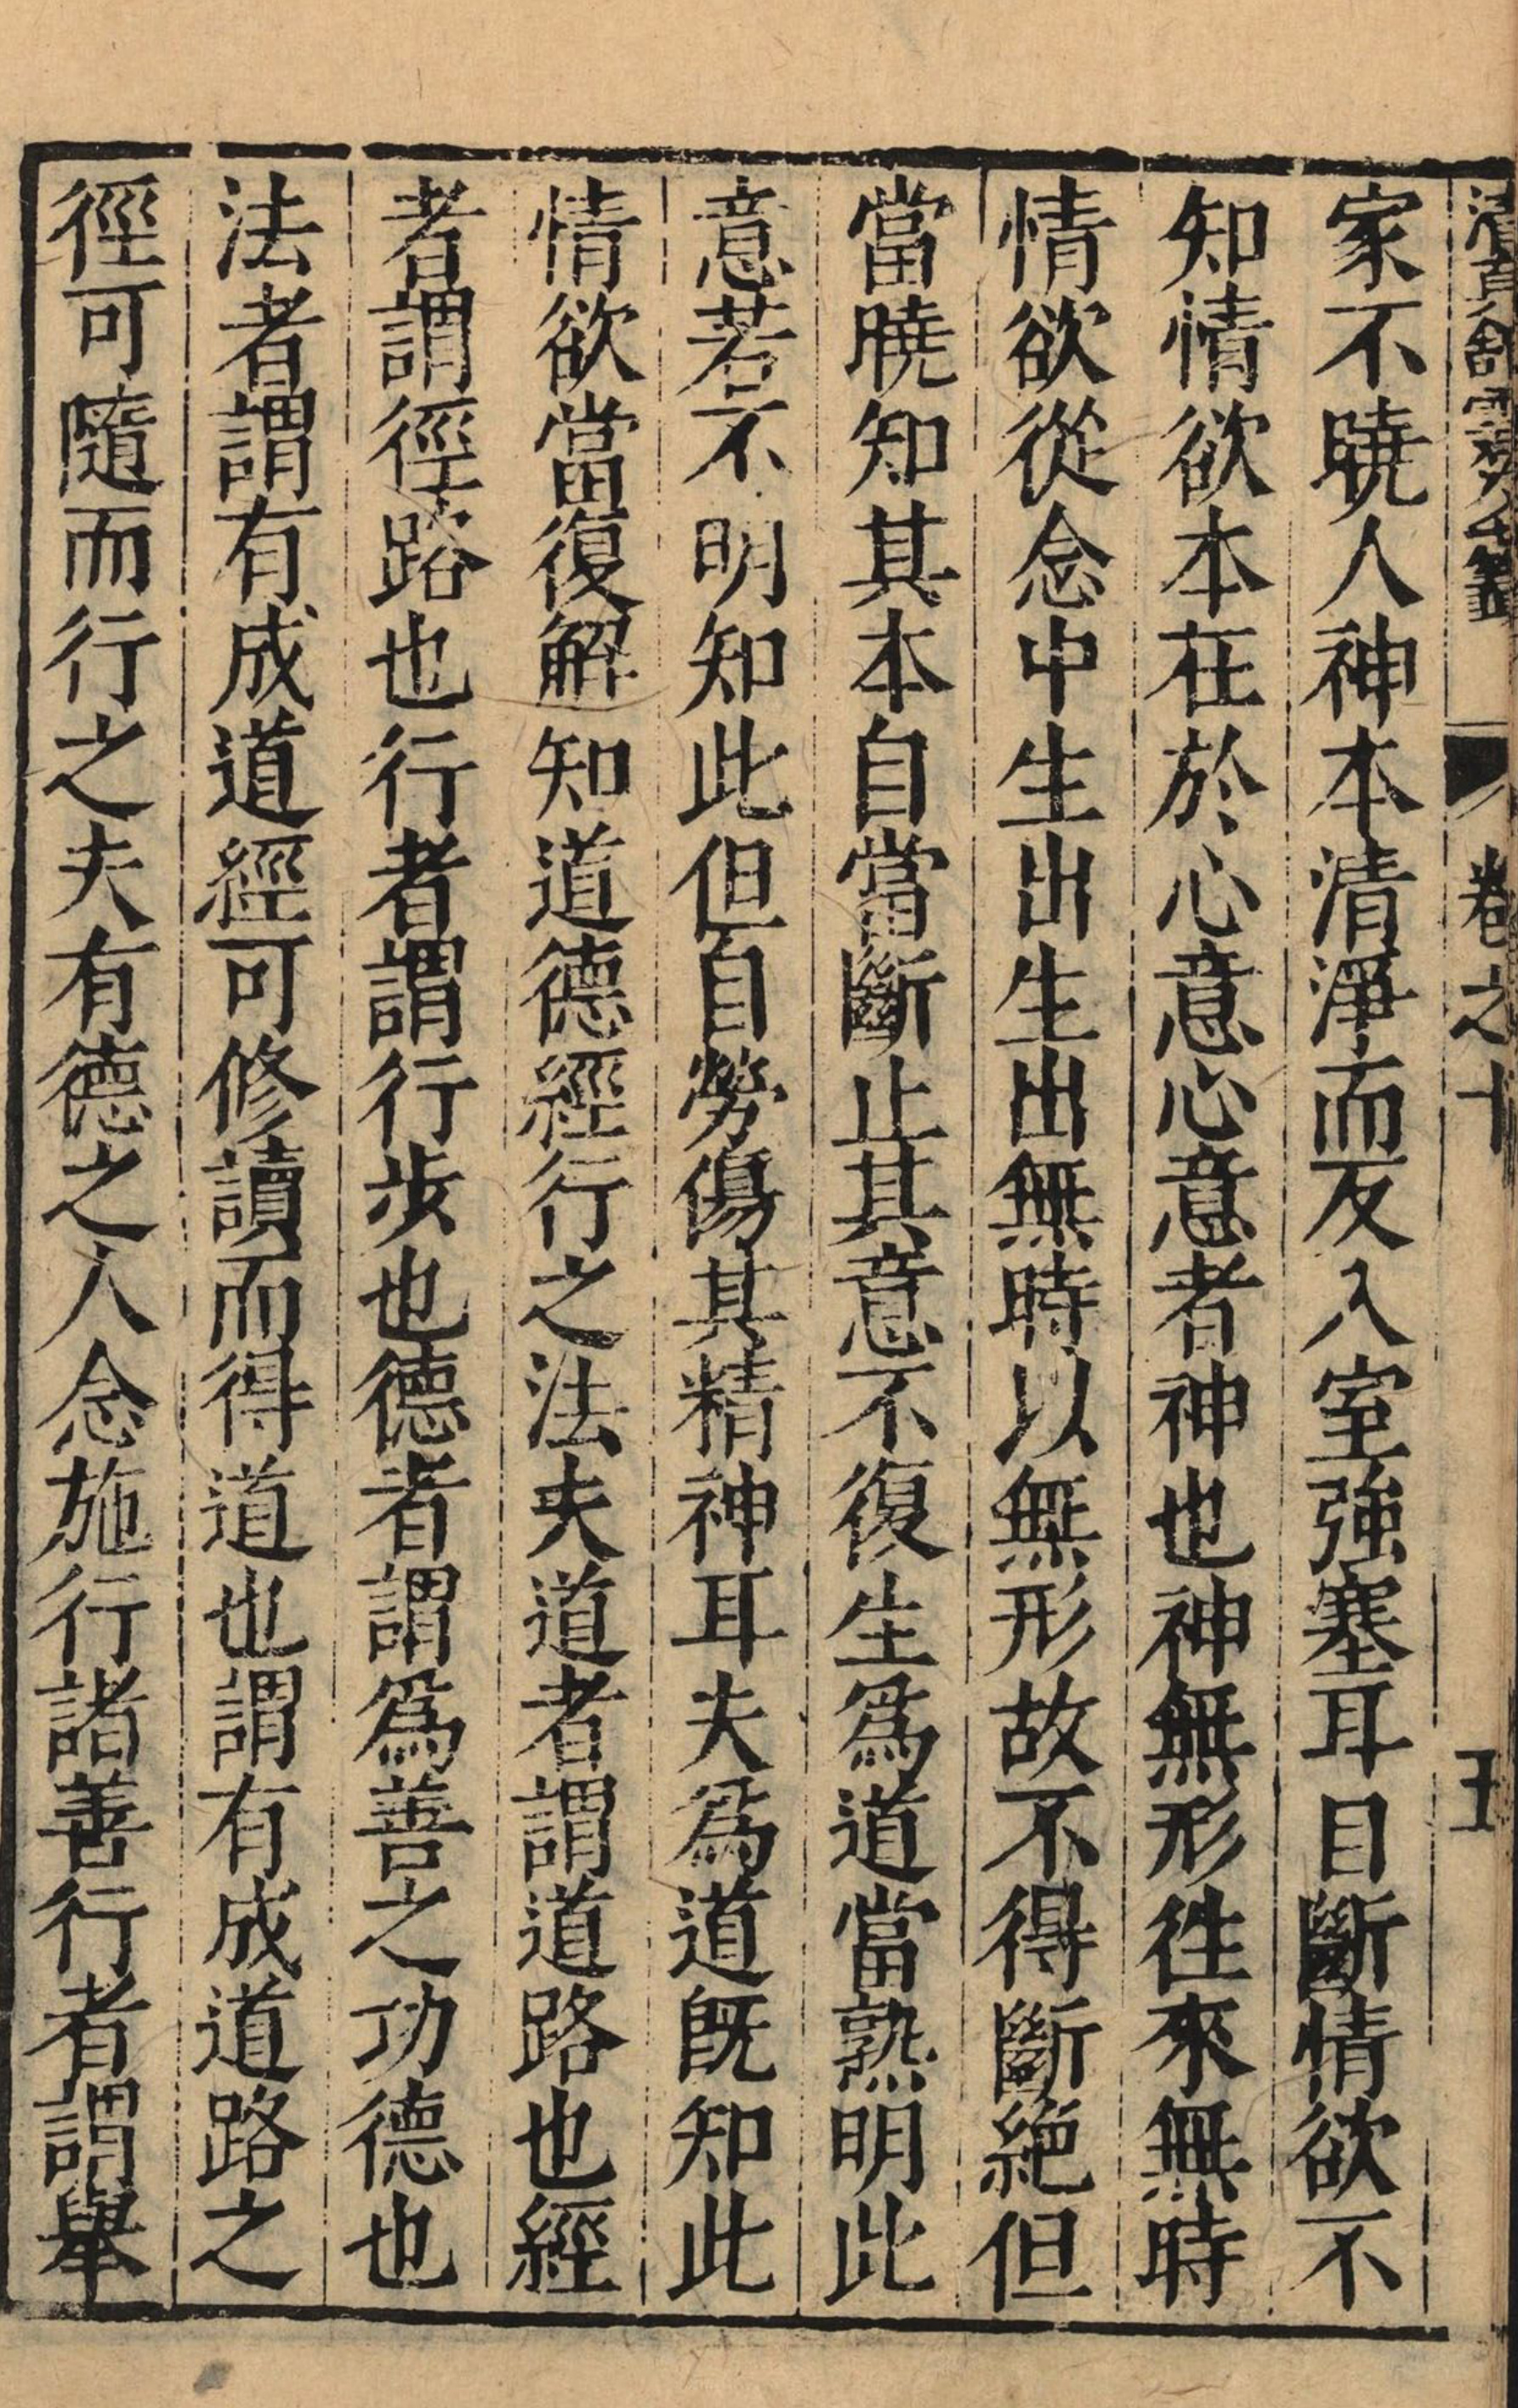 卷之十
五
家不曉人神本清淨而反入室強塞耳目斷情欲不
知情欲本在於心意心意者神也神無形徃來無時
情欲從念中生出生出無時以無形故不得斷絕但
當曉知其本自當斷止其意不復生爲道當熟明此
意若不明知此但自勞傷其精神耳夫爲道既知此
情欲當復解知道德經行之法夫道者謂道路也經
者謂徑路也行者謂行步也德者謂爲善之功德也
法者謂有成道經可修讀而得道也謂有成道路之
徑可隨而行之夫有德之人念施行諸善行者謂舉